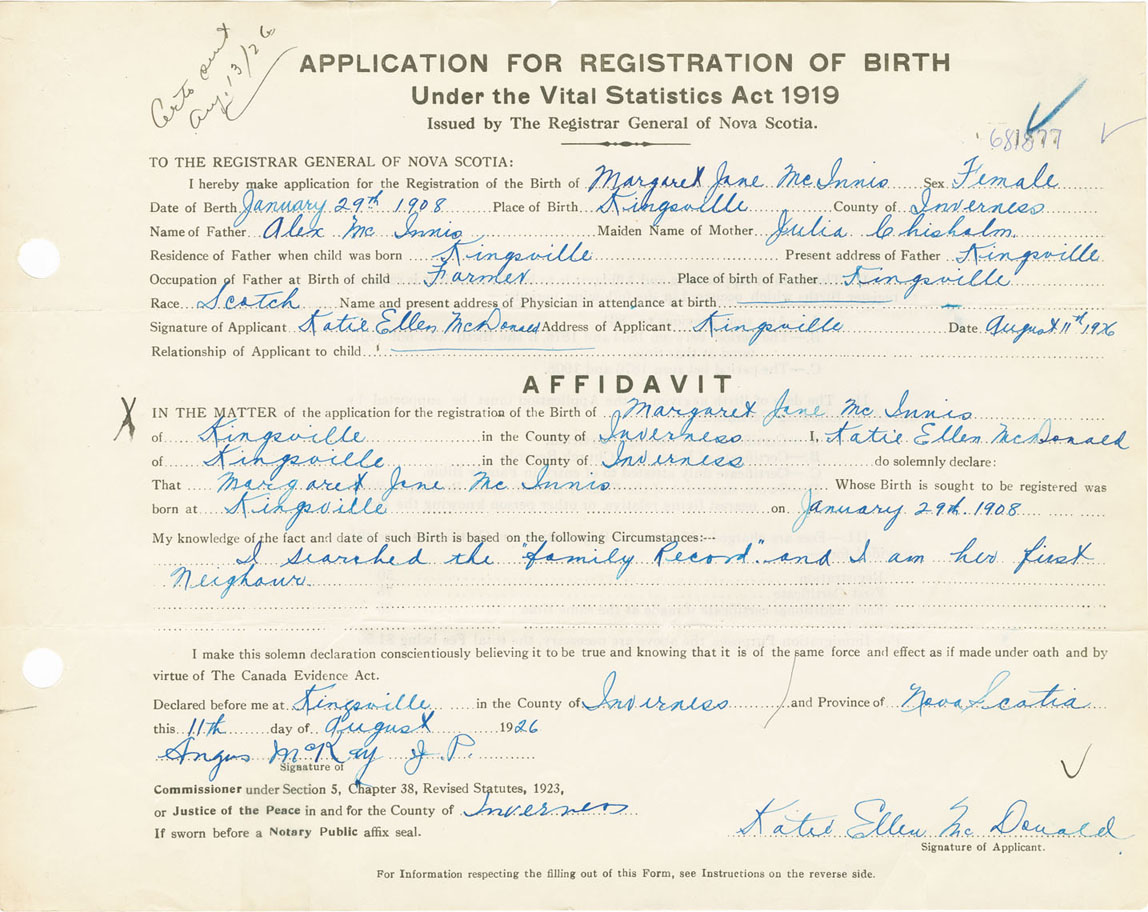 Certo sent
Aug. 13/26
APPLICATION FOR REGISTRATION OF BIRTH
Under the Vital Statistics Act 1919
Issued by The Registrar General of Nova Scotia.
681877
TO THE REGISTRAR GENERAL OF NOVA SCOTIA:
I hereby make application for the Registration of the Birth of Margaret Jane McInnis Sex Female
Date of Berth January 29th 1908 Place of Birth Kingsville County of Inverness
Name of Father Alex McInnis Maiden Name of Mother Julia Chisholm.
Residence of Father when child was born Kingsville Present address of Father Kingsville
Occupation of Father at Birth of child Farmer Place of birth of Father Kingsville
Race Scotch Name and present address of Physician in attendance at birth
Signature of Applicant Katie Ellen McDonald Address of Applicant Kingsville Date August 11th 1926
Relationship of Applicant to child
AFFIDAVIT
X IN THE MATTER of the application for the registration of the Birth of Margaret Jane McInnis
of Kingsville in the County of Inverness I, Katie Ellen McDonald
of Kingsville in the County of Inverness do solemnly declare:
That Margaret Jane McInnis Whose Birth is sought to be registered was
born at Kingsville on January 29th 1908
My knowledge of the fact and date of such Birth is based on the following Circumstances:--
I searched the "family Record". and I am her first
Neighour.
I make this solemn declaration conscientiously believing it to be true and knowing that it is of the same force and effect as if made under oath and by
virtue of The Canada Evidence Act.
Declared before me at Kingsville in the County of Inverness and Province of Nova Scotia
this 11th day of August 1926
Angus McKay J.P.
Signature of
Commissioner under Section 5, Chapter 38, Revised Statutes, 1923,
or Justice of the Peace in and for the County of Inverness
If sworn before a Notary Public affix seal.
Katie Ellen McDonald
Signature of Applicant.
For Information respecting the filling out of this Form, see Instructions on the reverse side.